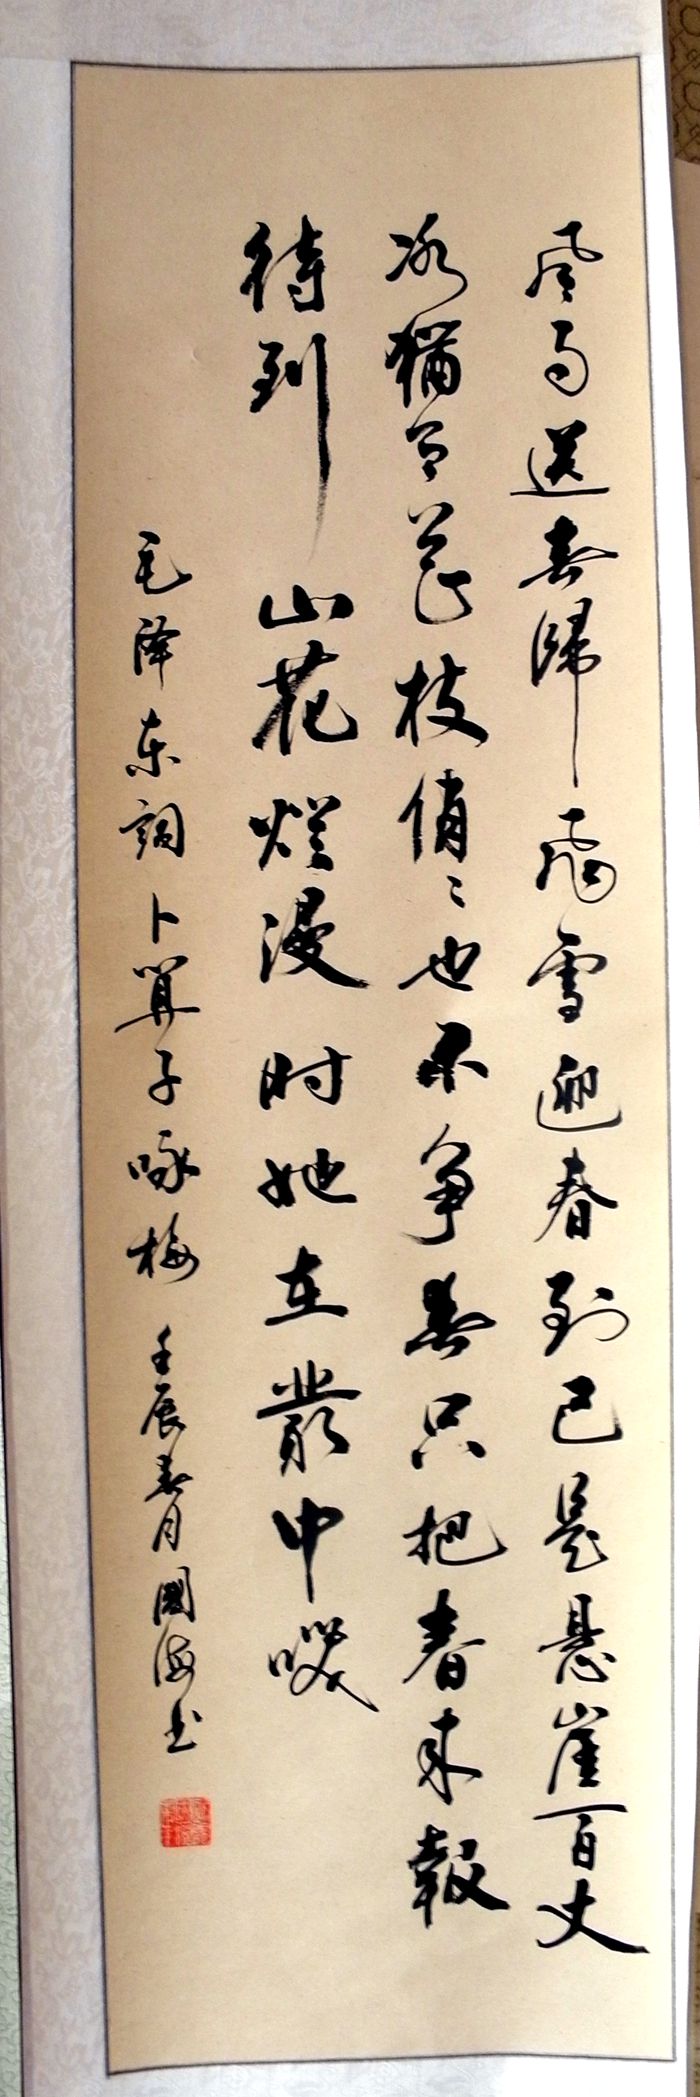 风雨送春歸飛雪迎春到已是悬崖百丈
冰猶有花枝俏〻也不争春只把春来報
待到山花烂漫时她在叢中咲
毛泽东詞卜算子咏梅 壬辰春月國海书